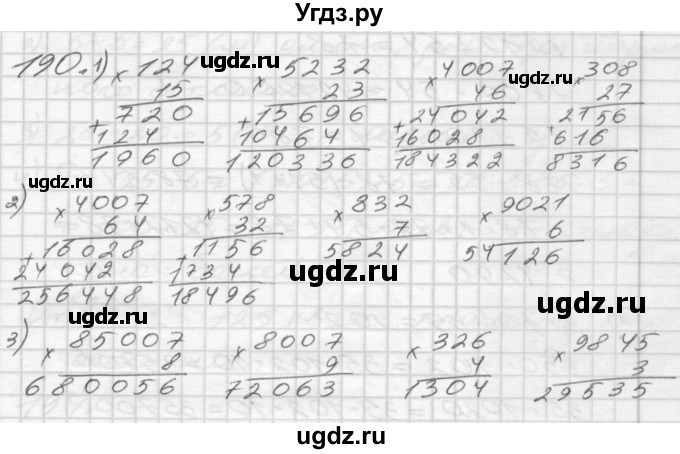 Угдз.ру
190. 1) × 124 × 5232 × 4007 × 308
15 23 46 27
+ 720 + 15696 + 24042 2156
124 10464 16028 616
1960 120336 184322 8316
2) × 4007 × 578 × 832 × 9021
64 32 7 6
+ 16028 1156 5824 54126
24042 1734
256448 18496
3) × 85007 × 8007 × 326 × 9845
8 9 4 3
680056 72063 1304 29535
ugdz.ru
ugdz.ru
ugdz.ru
ugdz.ru
ugdz.ru
ugdz.ru
ugdz.ru
ugdz.ru